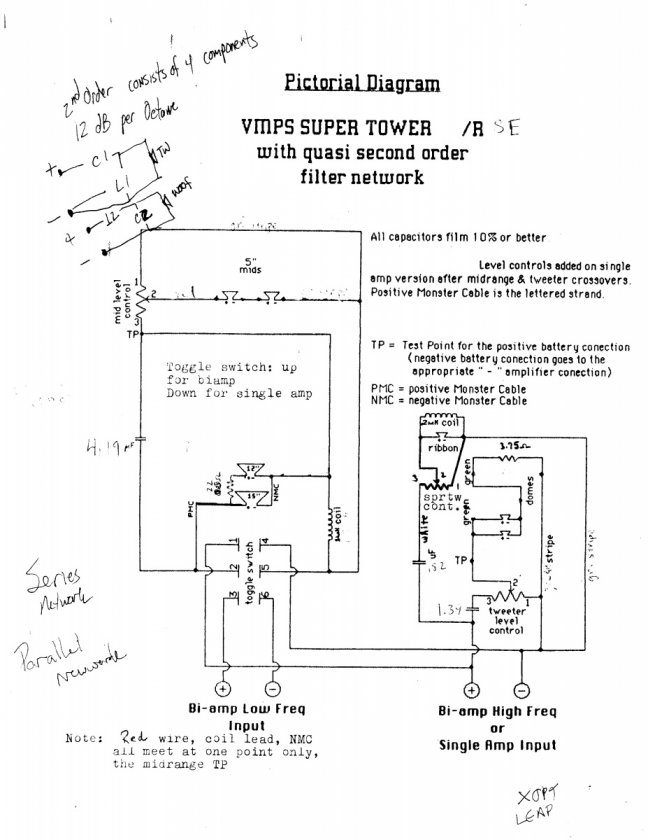 2nd Order consists of 4 components
12 dB per Octave
+ C1 TW
- L1
+ L2 C2 woof
-
Pictorial Diagram
VMPS SUPER TOWER /R SE
with quasi second order
filter network
All capacitors film 10% or better
Level controls added on single
amp version after midrange & tweeter crossovers.
Positive Monster Cable is the lettered strand.
TP = Test Point for the positive battery conection
(negative battery conection goes to the
appropriate " - " amplifier conection)
PMC = positive Monster Cable
NMC = negative Monster Cable
5"
mids
mid level
control
1
2
3
TP
Toggle switch: up
for biamp
Down for single amp
4.19 mF
12"
15"
PMC
NMC
coil
1 4
2 5
3 6
toggle switch
coil
ribbon
3.75Ω
3 2 1
sprtw
cont.
white
green
green
domes
TP
stripe
1.34
3 2 1
tweeter
level
control
+ -
Bi-amp Low Freq
Input
+ -
Bi-amp High Freq
or
Single Amp Input
Series
Network
Parallel
Note: Red wire, coil lead, NMC
all meet at one point only,
the midrange TP
XOPT
LEAP